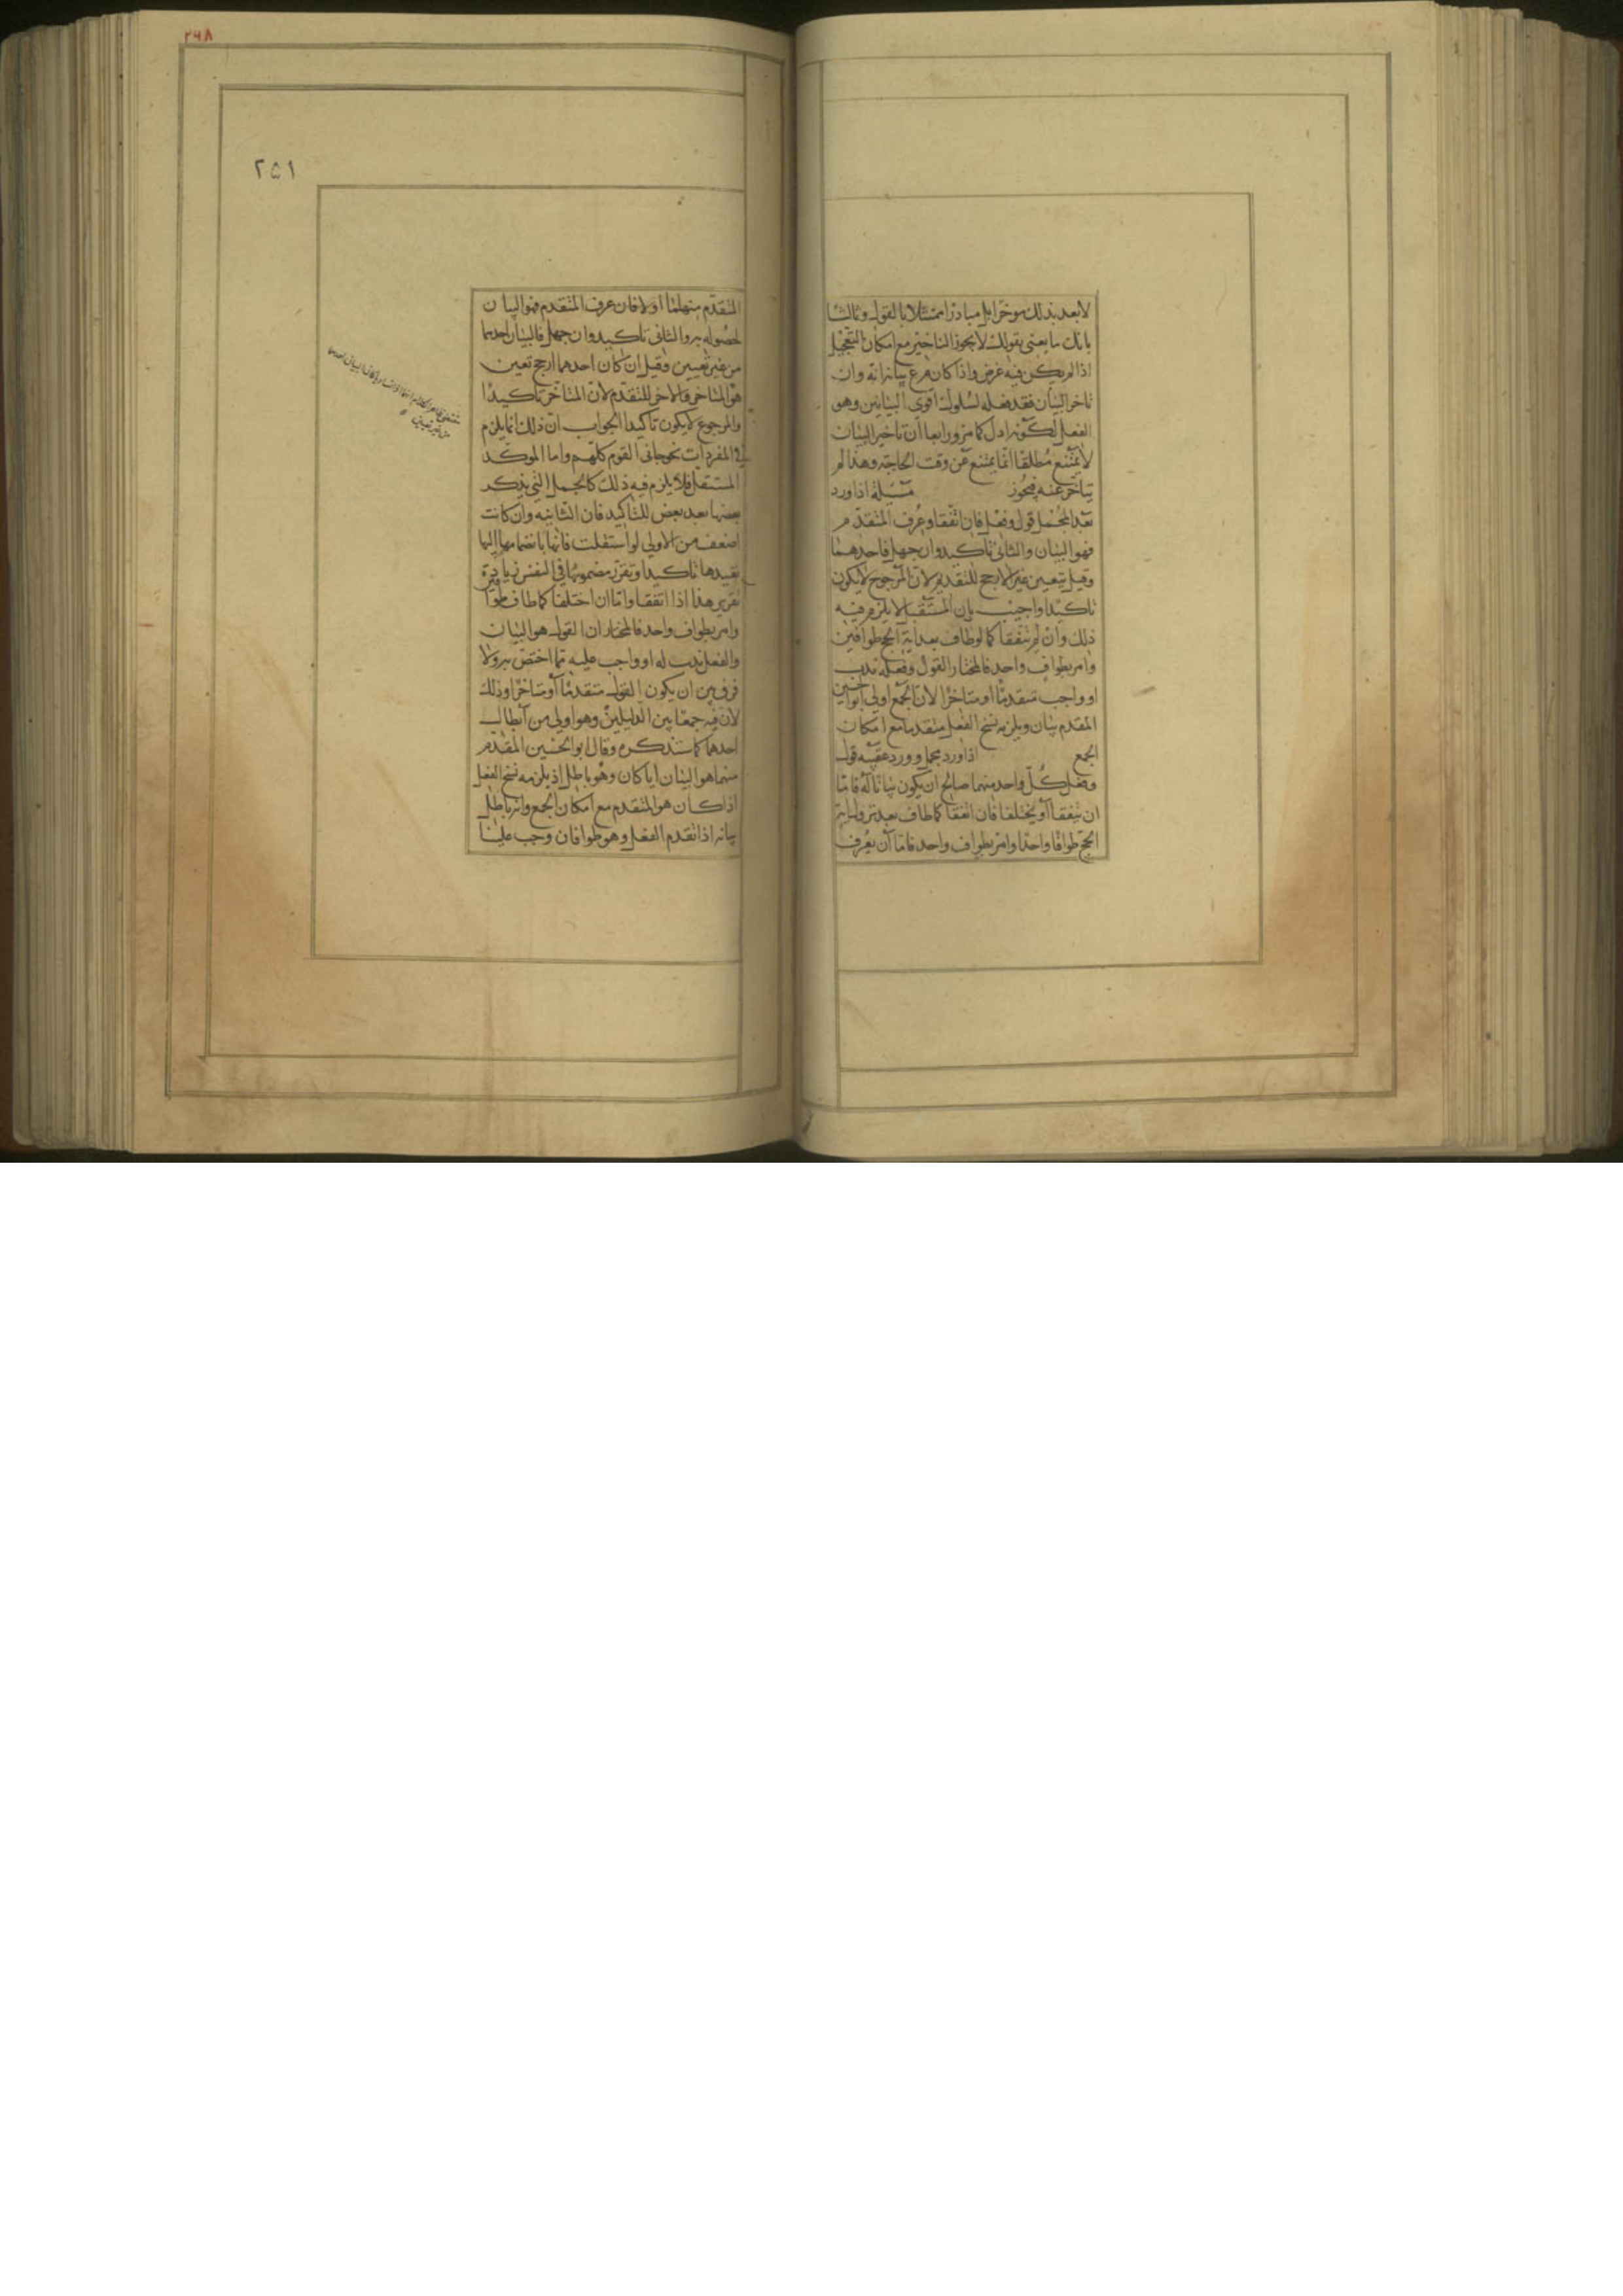 لا يعد بذلك موخرا بل مبادرا ممتثلا بالقول وثالثا
بانك ما يعنى بقولك لا يجوز التاخير مع امكان التعجيل
اذا لم يكن فيه غرض واذا كان فرع بيانه انه وان
تاخر البيان فقد فعله لسلوك اقوى البيانين وهو
الفعل لكونه ادل كما مر ورابعا ان تاخير البيان
لا يمتنع مطلقا انما يمتنع عن وقت الحاجة وهذا لم
يتاخر عنه فيجوز مسئلة اذا ورد
بعد المجمل قول وفعل فان اتفقا وعرف المتقدم
فهو البيان والثانى تاكيد وان جهل فاحدهما
وقيل يتعين غير الارجح للتقديم لان المرجوح لا يكون
تاكيدا واجيب بان المستقل لا يلزم فيه
ذلك وان لم يتفقا كما لو طاف بعد اية الحج طوافين
وامر بطواف واحد فالمختار القول وفعله ندب
او واجب متقدما او متاخرا لان الجمع اولى ابو الحسين
المقدم بيان ويلزمه نسخ الفعل متقدما مع امكان
الجمع اذا ورد مجمل وورد عقيبه قول
وفعل كل واحد منهما صالح ان يكون بيانا له فاما
ان يتفقا او يختلفا فان اتفقا كما طاف بعد نزول اية
الحج طوافا واحدا وامر بطواف واحد فاما ان يعرف
٢٦٨
٢٥١
المتقدم منهما اولا فان عرف المتقدم فهو البيان
لحصوله به والثانى تاكيد وان جهل فالبيان احدهما
من غير تعيين وقيل ان كان احدهما ارجح تعين
هو المتاخر والاخر للتقدم لان المتاخر تاكيدا
والمرجوع لا يكون تاكيدا الجواب ان ذلك انما يلزم
فى المفردات نحو جانى القوم كلهم واما الموكد
المستقل فلا يلزم فيه ذلك كالجمل التى يذكر
بعضها بعد بعض للتاكيد فان الثانية وان كانت
اضعف من الاولى لو استقلت فانها بانضمامها اليها
يفيدها تاكيدا وتقرر مضمونها فى النفس زيادة
تقرير هذا اذا اتفقا واما ان اختلفا كما طاف طوافين
وامر بطواف واحد فالمختار ان القول هو البيان
والفعل ندب له او واجب عليه مما اختص به ولا
فرق بين ان يكون القول متقدما او متاخرا وذلك
لان فيه جمعا بين الدليلين وهو اولى من ابطال
احدهما كما سنذكره وقال ابو الحسين المقدم
منهما هو البيان ايا كان وهو باطل اذ يلزمه نسخ الفعل
اذا كان هو المتقدم مع امكان الجمع وانه باطل
بيانه اذا تقدم الفعل وهو طوافان وجب علينا
من غير تعيين